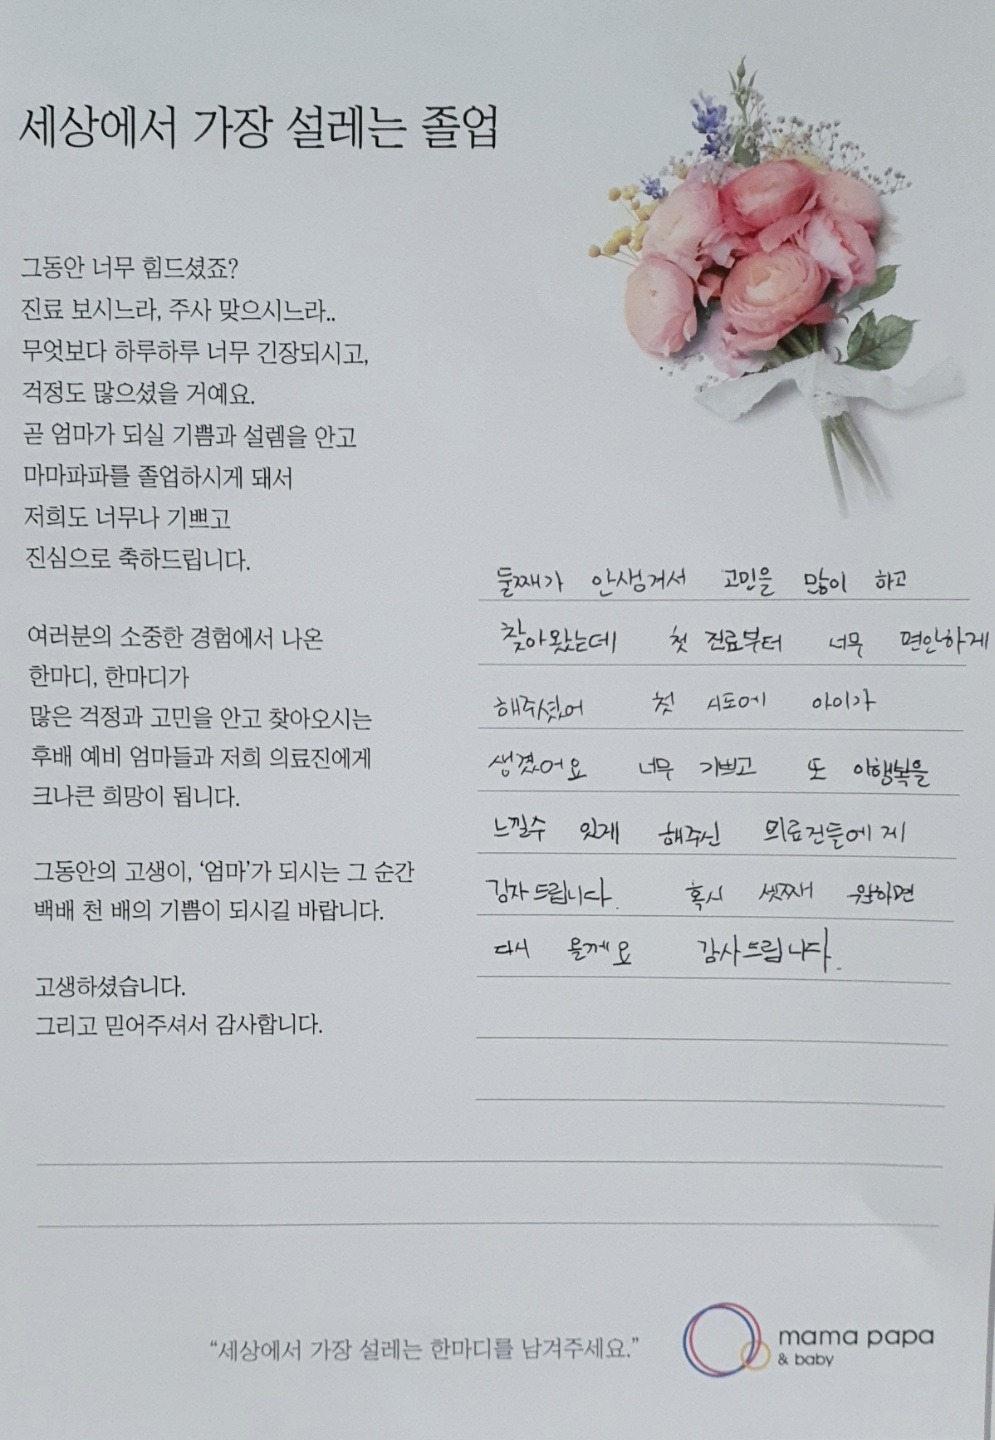 세상에서 가장 설레는 졸업
그동안 너무 힘드셨죠?
진료 보시느라, 주사 맞으시느라..
무엇보다 하루하루 너무 긴장되시고,
걱정도 많으셨을 거예요.
곧 엄마가 되실 기쁨과 설렘을 안고
마마파파를 졸업하시게 돼서
저희도 너무나 기쁘고
진심으로 축하드립니다.
여러분의 소중한 경험에서 나온
한마디, 한마디가
많은 걱정과 고민을 안고 찾아오시는
후배 예비 엄마들과 저희 의료진에게
크나큰 희망이 됩니다.
그동안의 고생이, ‘엄마’가 되시는 그 순간
백배 천 배의 기쁨이 되시길 바랍니다.
고생하셨습니다.
그리고 믿어주셔서 감사합니다.
둘째가 안생겨서 고민을 많이 하고
찾아왔는데 첫 진료부터 너무 편안하게
해주셨어 첫 시도에 아이가
생겼어요 너무 기쁘고 또 이행복을
느낄수 있게 해주신 의료진들에게
감사드립니다. 혹시 셋째 원하면
다시 올께요 감사드립니다.
“세상에서 가장 설레는 한마디를 남겨주세요.”
mama papa
& baby